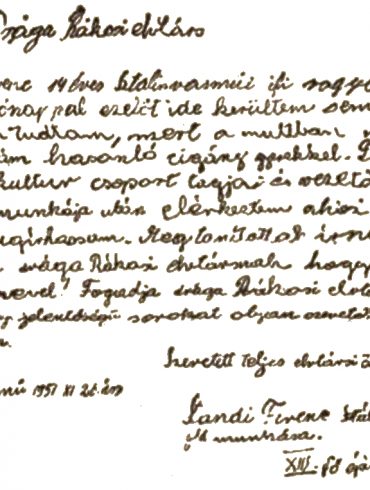 rága Rákosi elvtárs
renc 14 éves sztalinvasmüi ifi vagyo
ónappal ezelőt ide kerültem sem
tudtam, mert a multban
ám hasonló cigány gyerekkel.
kultur csoport tagjai és vezető
munkája után elérkeztem ahoz
ugírhassam. Megtanitottak irni
drága Rákosi elvtársnak hogy
nevel! Fogadja drága Rákosi elvt
jelentőségü sorokat olyan szeretet
Szeretett teljes elvtársi
mü 1951 XI 26.án
Landi Ferenc sztá
munkása.
XIV. fő épí